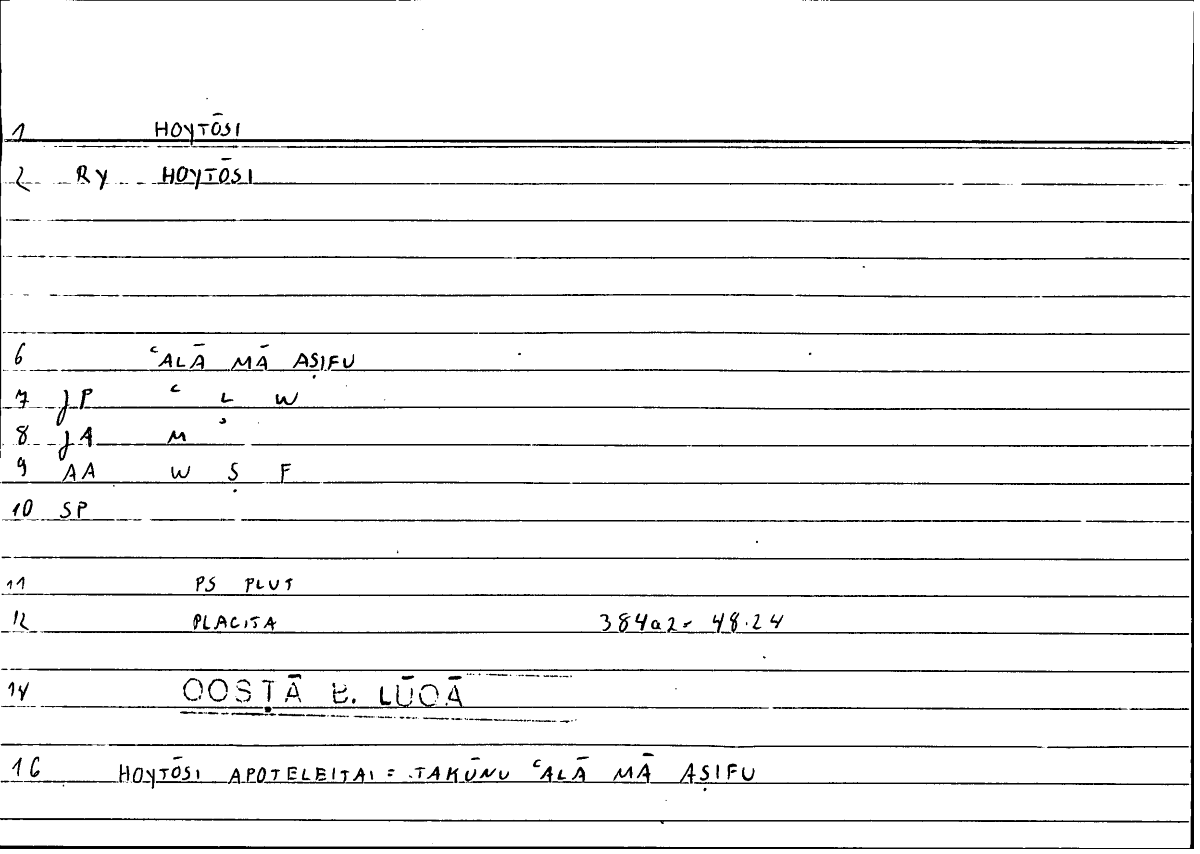 1 HOYTŌSI
2 RY HOYTŌSI
6 ʿALĀ MĀ AṢIFU
7 JP ʿ L W
8 JA M ʾ
9 AA W Ṣ F
10 SP
11 PS PLUT
12 PLACITA 384a2= 48.24
14 QOSṬĀ B. LŪQĀ
16 HOYTŌSI APOTELEITAI = TAKŪNU ʿALĀ MĀ AṢIFU